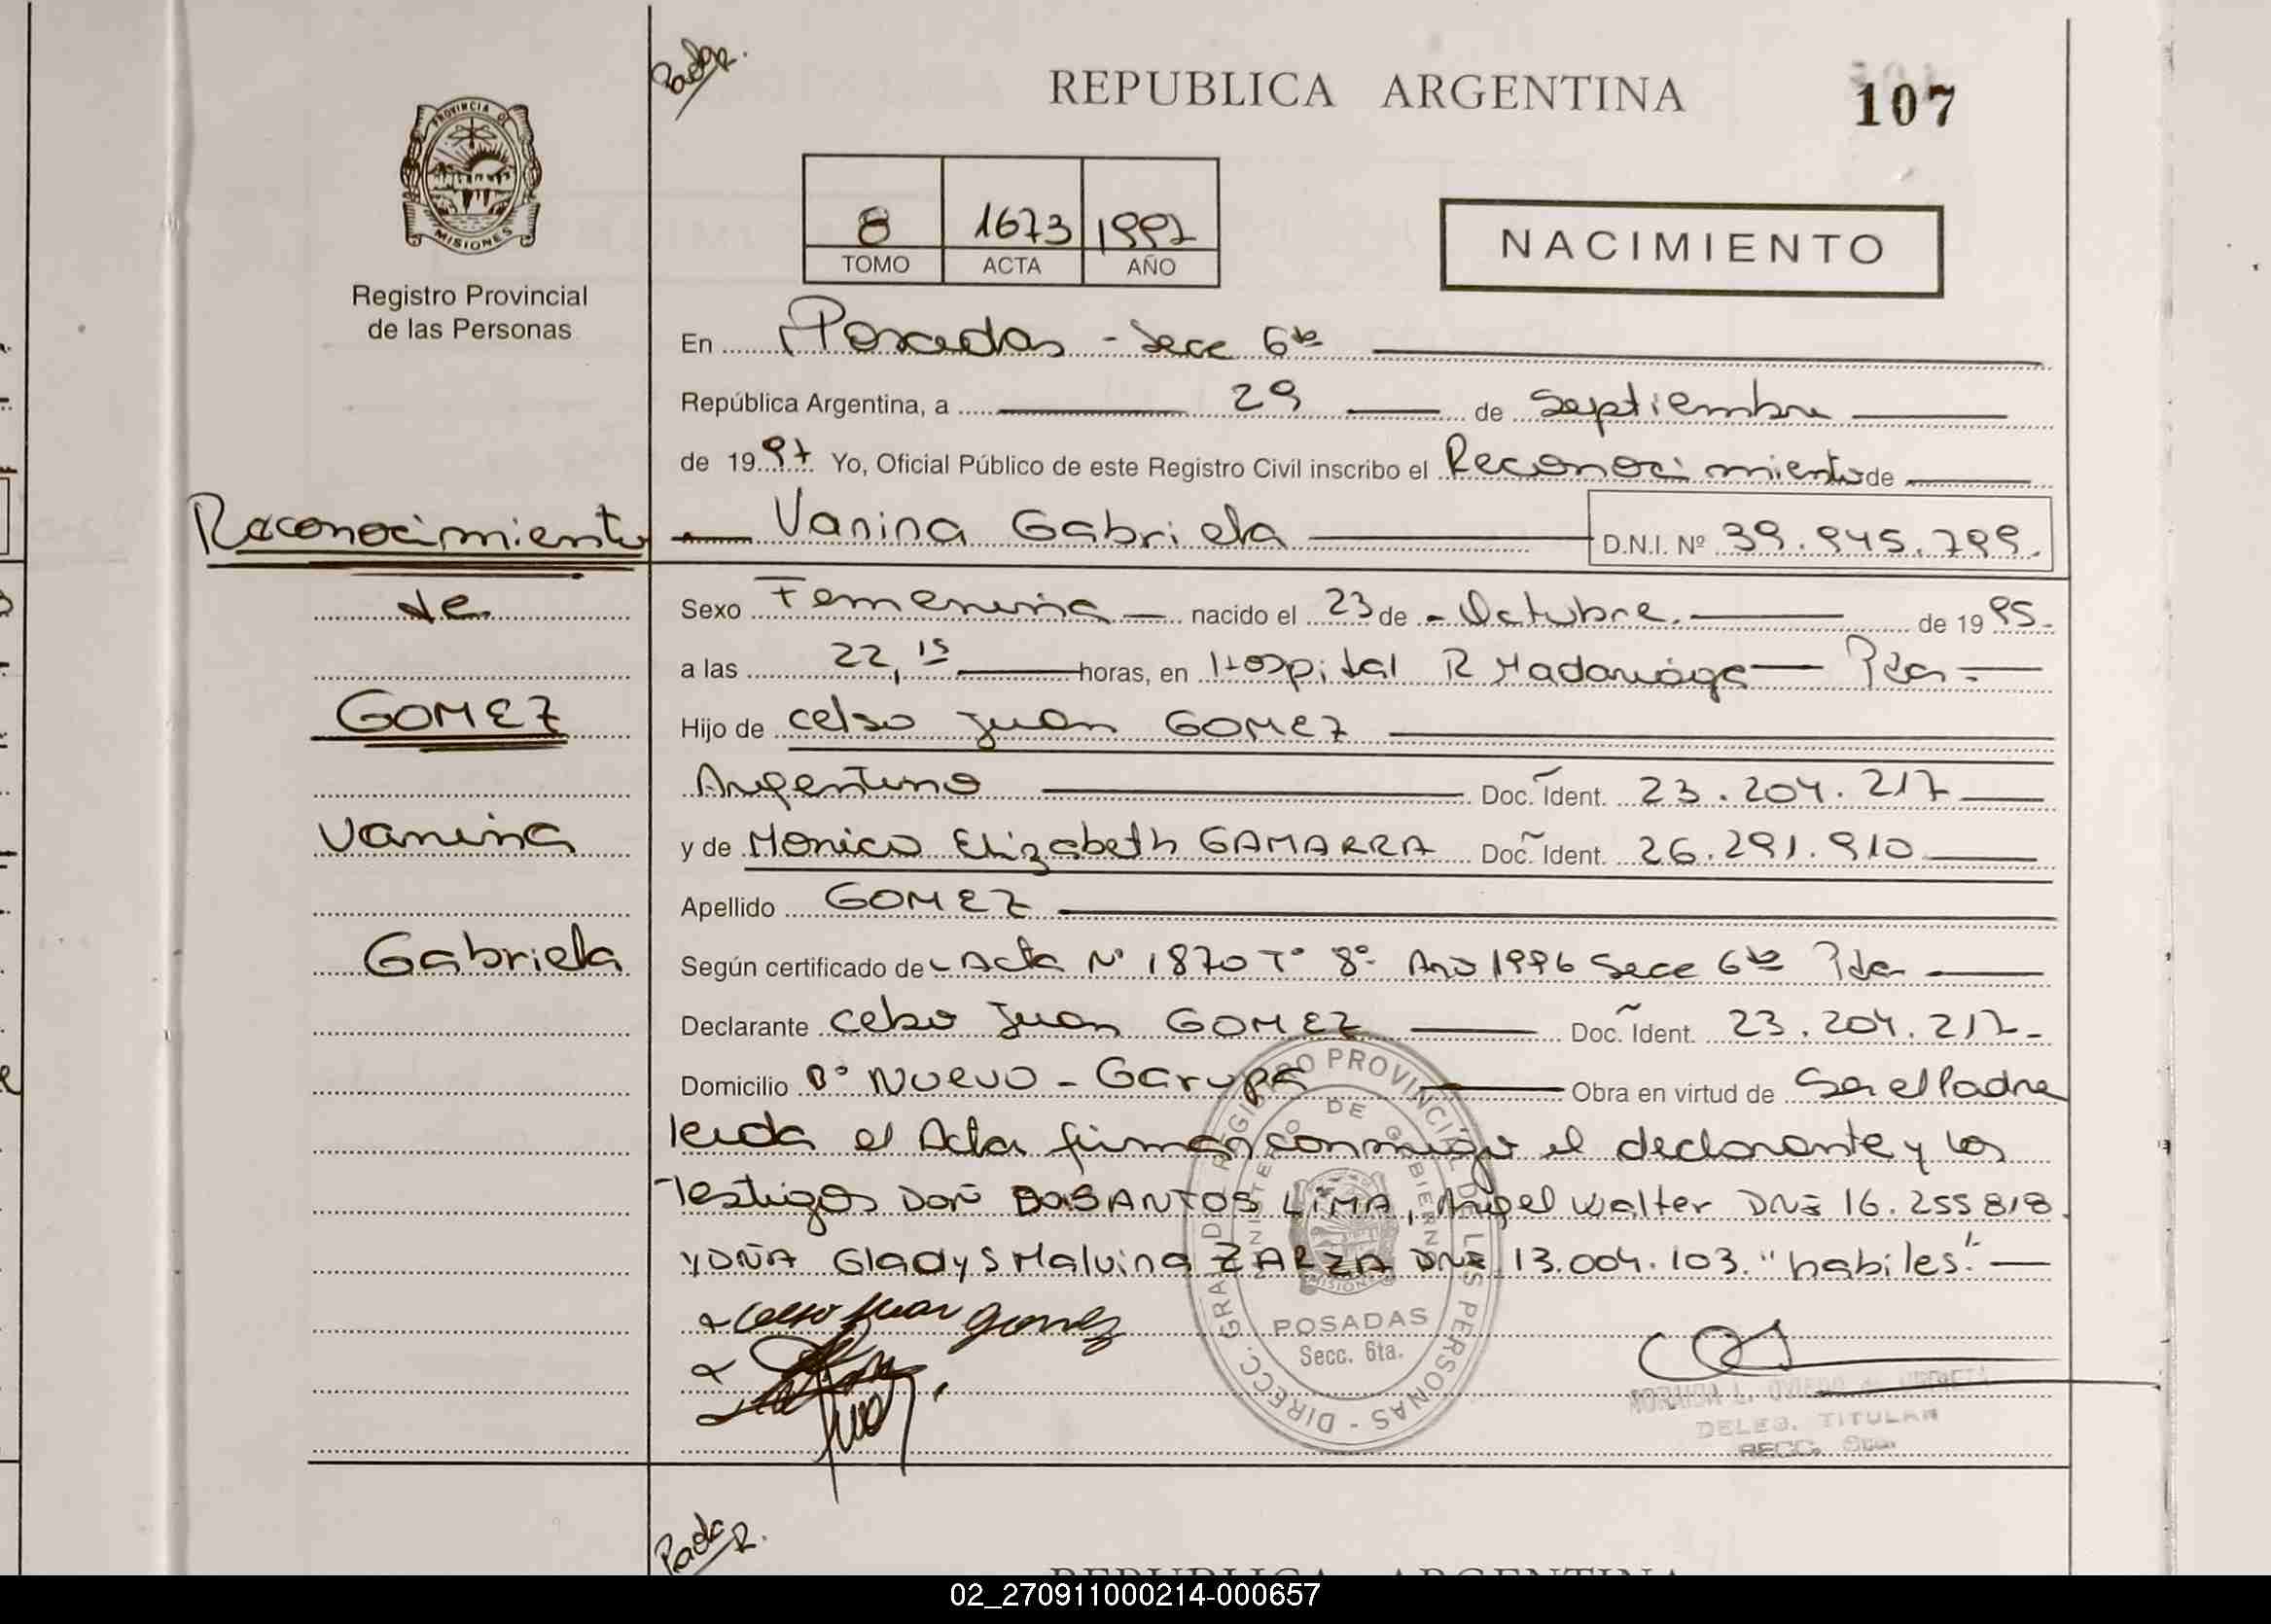 REPUBLICA ARGENTINA
107
PROVINCIA DE
MISIONES
Registro Provincial
de las Personas
8 1673 1997
TOMO ACTA AÑO
NACIMIENTO
En Posadas - Secc 6ta
República Argentina, a 29 de Septiembre
de 1997 Yo, Oficial Público de este Registro Civil inscribo el Reconocimiento de
Vanina Gabriela D.N.I. Nº 39.945.799.
Reconocimiento
de
GOMEZ
Vanina
Gabriela
Sexo Femenina nacido el 23 de Octubre. de 1995.
a las 22,15 horas, en Hospital R Madariaga Pdas
Hijo de Celso Juan GOMEZ
Argentino Doc. Ident. 23.204.217
y de Monica Elizabeth GAMARRA Doc. Ident. 26.291.910
Apellido GOMEZ
Según certificado de Acta Nº 1870 Tº 8º Año 1996 Secc 6ta Pdas
Declarante Celso Juan GOMEZ Doc. Ident. 23.204.217-
Domicilio Bº Nuevo - Garupa Obra en virtud de Ser el Padre
leida el Acta firman conmigo el declarante y los
Testigos Don DOSANTOS LIMA, Angel Walter DNI 16.255818
Y DÑA Gladys Malvina ZARZA DNI 13.004.103. "habiles".
Celso Juan Gomez
DIRECC. GRAL. D. REGISTRO PROVINCIAL D. LAS PERSONAS -
MINISTERIO DE GOBIERNO
MISIONES
POSADAS
Secc. 6ta.
DELEG. TITULAR
SECC. 6ta.
REPUBLICA ARGENTINA
02_270911000214-000657